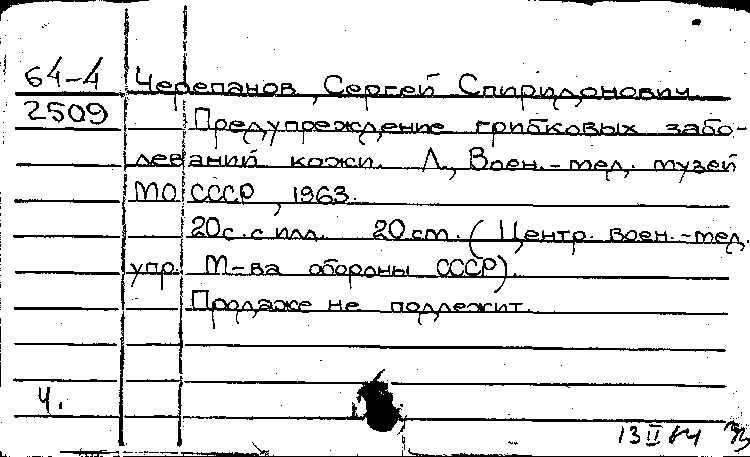 64-4 Черепанов, Сергей Спиридонович
2509 Предупреждение грибковых забо-
леваний кожи. Л., Воен.-мед. музей
МО СССР, 1963.
20с. с илл. 20 см. (Центр. воен.-мед.
упр. М-ва обороны СССР).
Продаже не подлежит.
Ч.
13 II 84